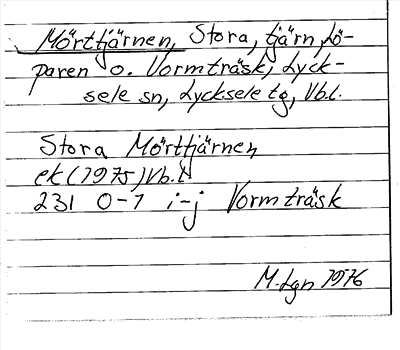 Mörttjärnen, Stora, tjärn, Lö-
paren o. Vormträsk, Lyck-
sele sn, Lycksele tg, Vb.l.
Stora Mörttjärnen
ek (1975) Vb.l
231 0-1 i-j Vormträsk
M. Lgn 1976